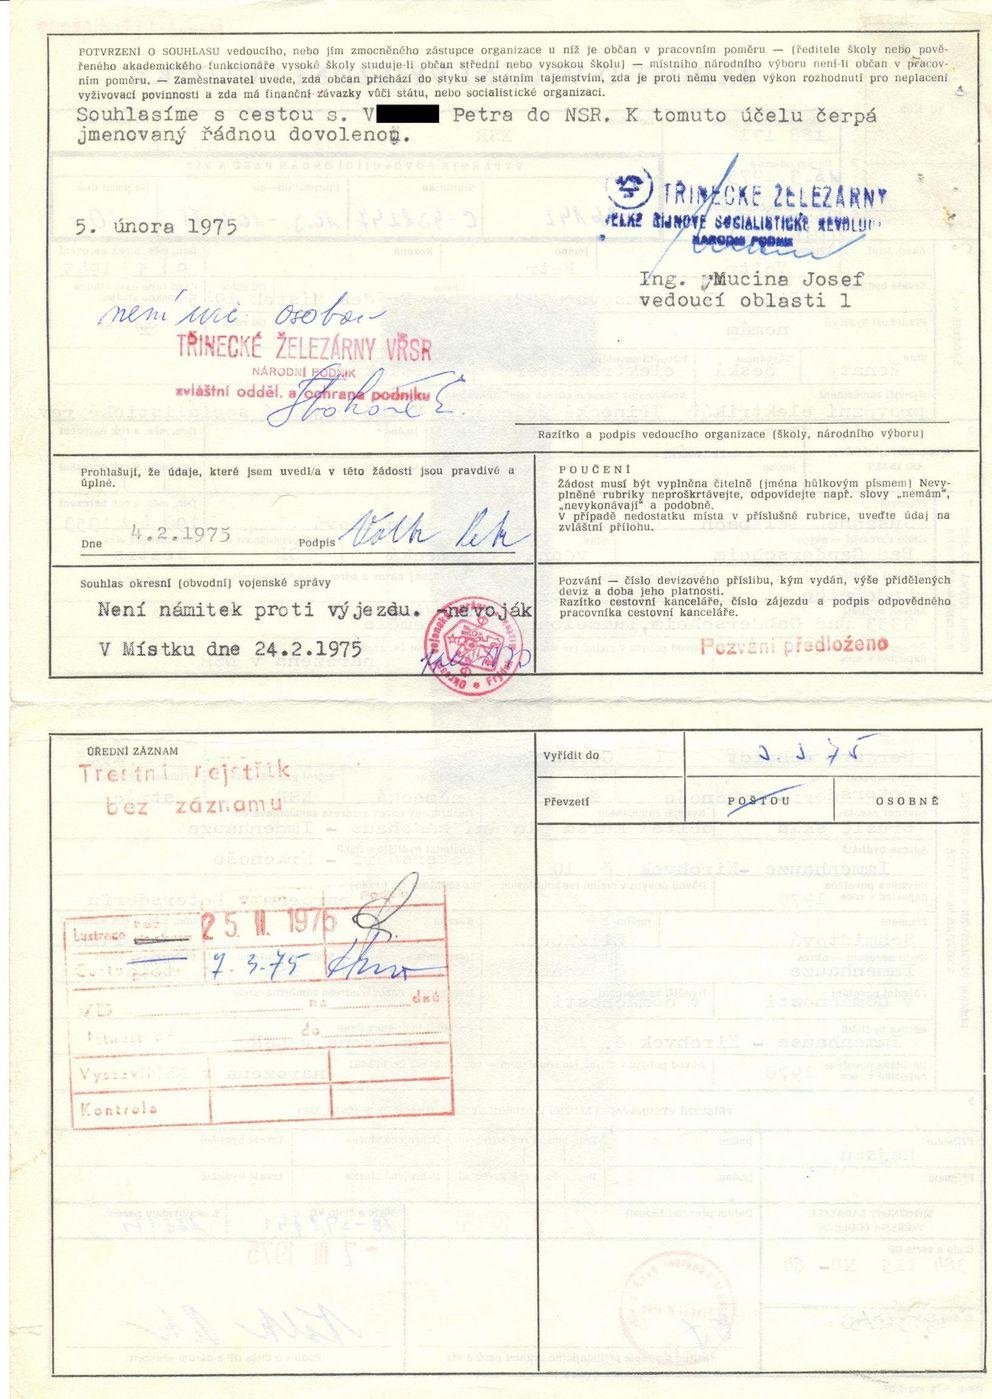 POTVRZENÍ O SOUHLASU vedoucího, nebo jím zmocněného zástupce organizace u níž je občan v pracovním poměru — (ředitele školy nebo pově-
řeného akademického funkcionáře vysoké školy studuje-li občan střední nebo vysokou školu) — místního národního výboru není-li občan v pracov-
ním poměru. — Zaměstnavatel uvede, zda občan přichází do styku se státním tajemstvím, zda je proti němu veden výkon rozhodnutí pro neplacení
vyživovací povinnosti a zda má finanční závazky vůči státu, nebo socialistické organizaci.
Souhlasíme s cestou s. V Petra do NSR. K tomuto účelu čerpá
jmenovaný řádnou dovolenou.
TŘINECKÉ ŽELEZÁRNY
VELKÉ ŘÍJNOVÉ SOCIALISTICKÉ REVOLUCE
NÁRODNÍ PODNIK
5. února 1975
Ing. Mucina Josef
vedoucí oblasti 1
není osobou
TŘINECKÉ ŽELEZÁRNY VŘSR
NÁRODNÍ PODNIK
zvláštní odděl. a ochrana podniku
Razítko a podpis vedoucího organizace (školy, národního výboru)
Prohlašuji, že údaje, které jsem uvedl/a v této žádosti jsou pravdivé a
úplné.
Dne 4.2.1975 Podpis
POUČENÍ
Žádost musí být vyplněna čitelně (jména hůlkovým písmem) Nevy-
plněné rubriky neproškrtávejte, odpovídejte např. slovy „nemám",
„nevykonávají" a podobně.
V případě nedostatku místa v příslušné rubrice, uveďte údaj na
zvláštní přílohu.
Souhlas okresní (obvodní) vojenské správy
Není námitek proti výjezdu. -nevoják
V Místku dne 24.2.1975
Pozvání — číslo devizového příslibu, kým vydán, výše přidělených
deviz a doba jeho platnosti.
Razítko cestovní kanceláře, číslo zájezdu a podpis odpovědného
pracovníka cestovní kanceláře.
Pozvání předloženo
ÚŘEDNÍ ZÁZNAM
Trestní rejstřík
bez záznamu
Vyřídit do 3.3.75
Převzetí POŠTOU OSOBNĚ
Lustrace bez 25. II. 1975
7.3.75
VD na dnů
do
Vystavil
Kontrola